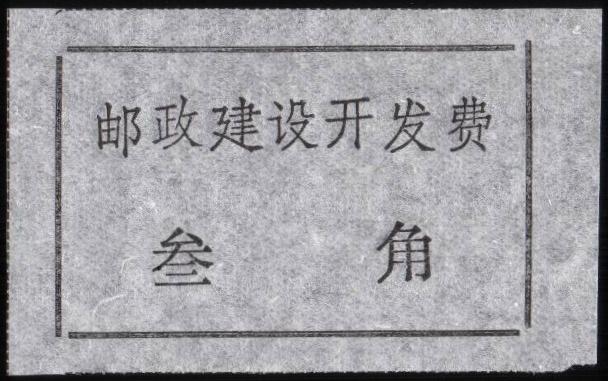 邮政建设开发费
叁 角